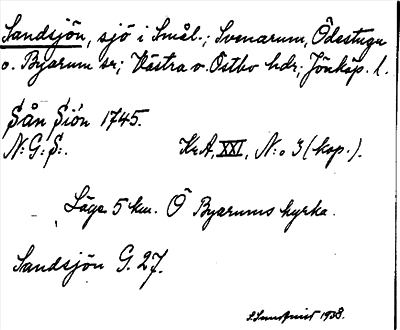 Sandsjön, sjö i Smål.; Svenarum, Ödestugu
o. Byarum sr; Västra o. Östbo hdr; Jönköp. l.
Sån Siön 1745.
N:G:S:. Kr.A, XXI, N:o 3 (kop.).
Läge 5 km. Ö Byarums kyrka.
Sandsjön G. 27.
1938.